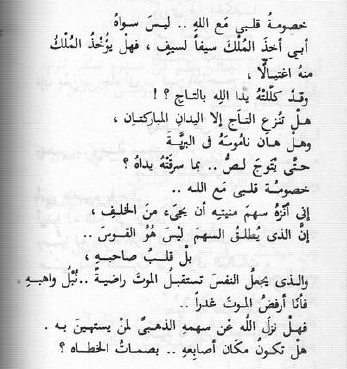 خصومةُ قلبى مَع اللهِ .. ليسَ سواهُ
أبى أخذَ المُلْكَ سيفاً لسيفٍ ، فهلْ يُؤْخذُ المُلْكُ
منهُ اغتيالًا ،
وقدْ كلَّلتْهُ يدَا اللهِ بالتاجِ ؟ !
هلْ تنزعِ التاجَ إلا اليدانِ المباركتانِ ،
وهلْ هانَ ناموسُهُ فى البريَّةْ
حتَّى يُتوجَ لصٌّ .. بما سرقتْهُ يداهُ ؟
خصومةُ قلبى مَع اللهِ ..
إنى أنزّهُ سهمَ منيتِهِ أن يجىءَ منَ الخلفِ ،
إنَّ الذى يُطلقُ السهمَ ليسَ هُوَ القوسَ ..
بلْ قلبُ صاحبِهِ ،
والذى يجعلُ النفسَ تستقبلُ الموتَ راضيةً .. نُبْلُ واهبِهِ .
فأنا أرفضُ الموتَ غدراً ..
فهلْ نزلَ اللهُ عنْ سهمِهِ الذهبىِّ لمنْ يستهينُ بهِ .
هل تكونُ مكانَ أصابعِهِ .. بصماتُ الخطاه ؟